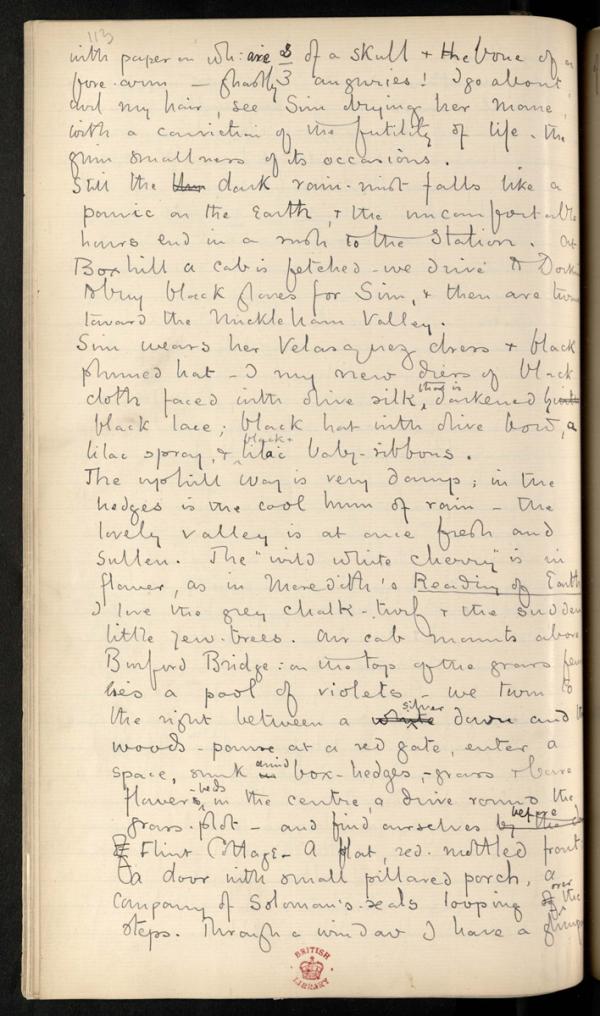 113
with paper on wh: are 2/3 of a skull + the bone of a
fore-arm — ghastly auguries! I go about
curl my hair, see Sim drying her mane,
with a conviction of the futility of life + the
grim smallness of its occasions.
Still the dark rain-mist falls like a
panic on the Earth, + the uncomfortable
hours end in a rush to the Station. At
Boxhill a cab is fetched - we drive to
to buy black gloves for Sim, + then are
toward the Mickleham Valley.
Sim wears her Velasquez dress + black
plumed hat - I my new of black
cloth faced with olive silk, that is darkened
black lace; black hat with olive bow, a
lilac spray, + black + lilac baby-ribbons.
The uphill way is very damp; in the
hedges is the cool hum of rain - the
lovely valley is at once fresh and
sullen. The "wild white cherry" is in
flower, as in Meredith's Reading of Earth
I love the grey chalk-turf + the sudden
little yew-trees. Our cab mounts above
Burford Bridge: on the top of the grass
lies a pool of violets - we turn to
the right between a white silver down and
woods - pause at a red gate, enter a
space, sunk in amid box-hedges, - grass + bare
flower-beds in the centre, a drive round the
grass-plot - and find ourselves before
Flint Cottage - A flat, red-mottled front
a door with small pillared porch, a
company of Soloman's-seals looping over the
steps. Through a window I have a glimpse
BRITISH
LIBRARY